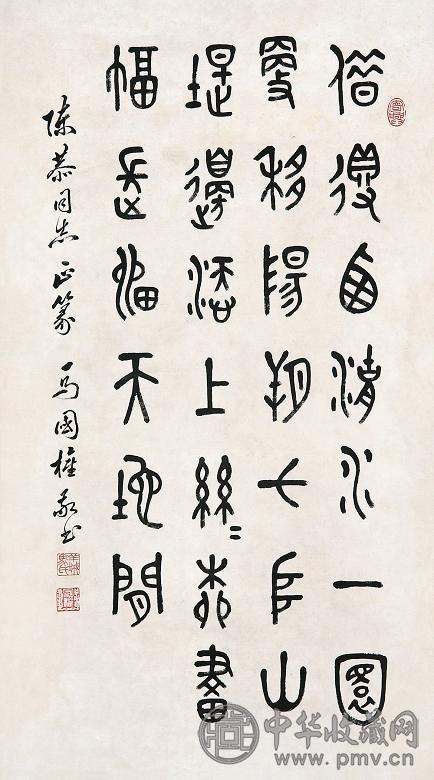 借得西湖水一圜
更移陽朔七堆山
堤邊添上絲〻柳畫
幅長留天地間
陳恭同志正篆 馬國權敬書
中华收藏网
www.pmv.cn